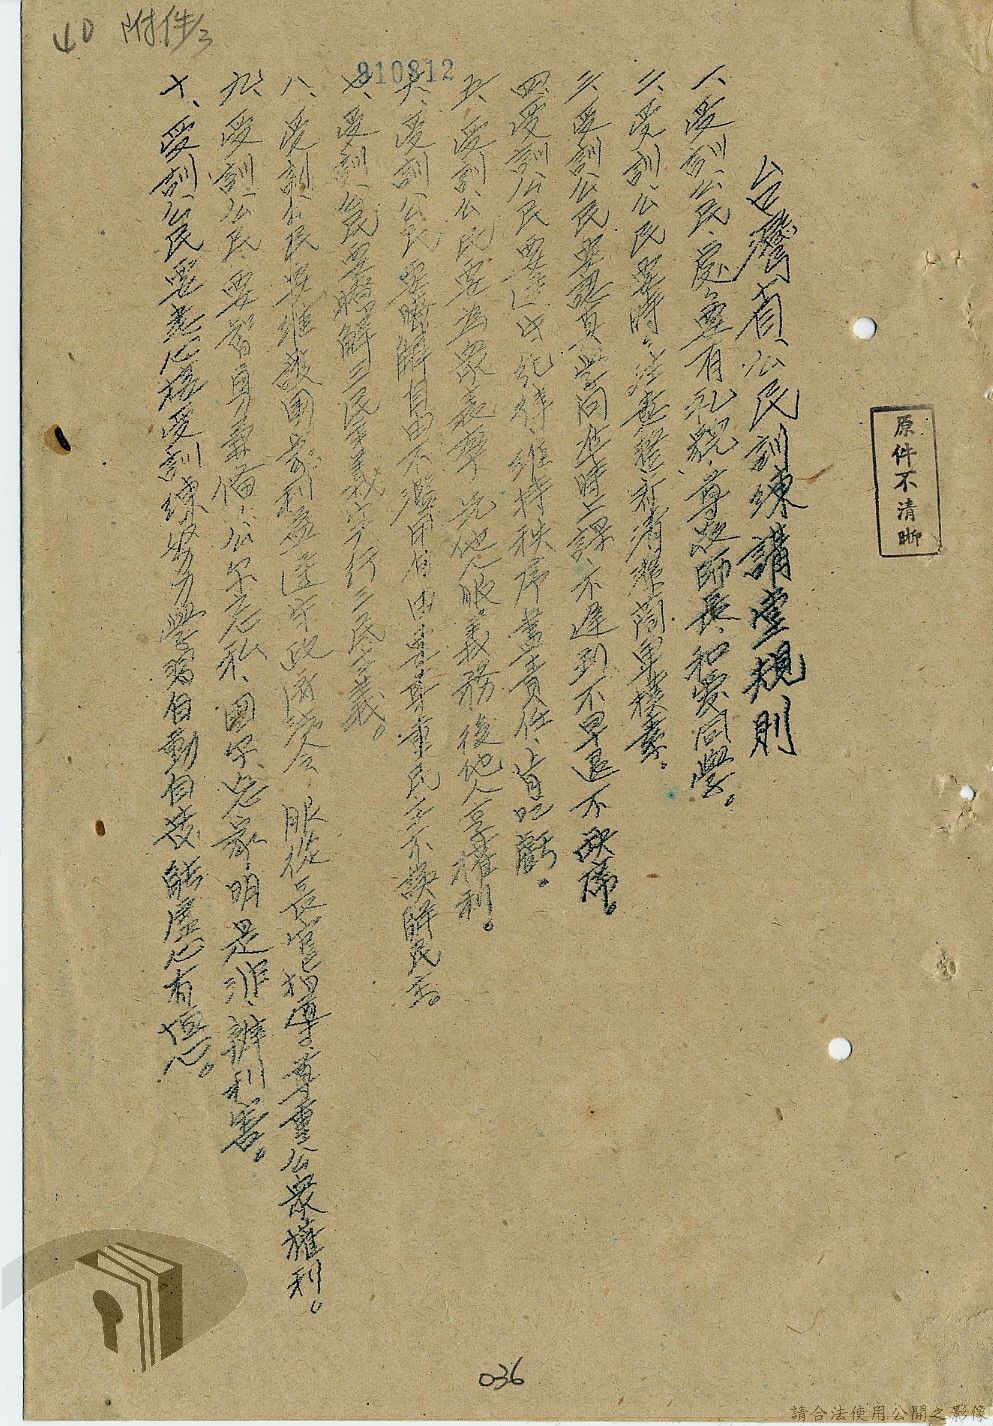 40 附件3
910812
原件不清晰
台灣省公民訓練講堂規則
一、受訓公民、處處要有礼貌、尊敬師長、和愛同學。
二、受訓公民要時時注意整齊清潔簡單樸素。
三、受訓公民要認真學問準時上課不遲到不早退不缺席。
四、受訓公民要遵守紀律、維持秩序、負責任、肯吃虧。
五、受訓公民要為眾表率、先他人服義務後他人享權利。
六、受訓公民要瞭解自由不濫用自由要尊重民主不誤解民主。
七、受訓公民要瞭解三民主義実行三民主義。
八、受訓公民要維護國家利益遵守政府法令、服從長官指導、尊重公眾權利。
九、受訓公民、要智勇兼備、公尔忘私、國尔忘家、明是非、辨利害。
十、受訓公民要悉心接受訓練努力學習自動自發能虛心有恒心。
036
請合法使用公開之影像